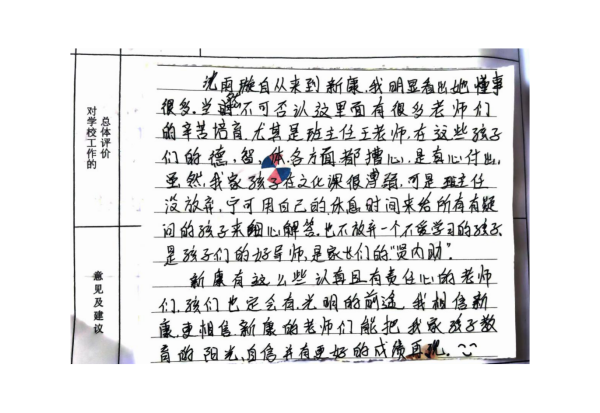 对学校工作的
总体评价
沈雨璇自从来到新康,我明显看出她懂事
很多。当然不可否认这里面有很多老师们
的辛苦培育,尤其是班主任王老师,在这些孩子
们的德、智、体各方面都操心,是真心付出,
虽然,我家孩子在文化课很薄弱,可是班主任
没放弃,宁可用自己的休息时间来给所有有疑
问的孩子来细心解答,也不放弃一个不爱学习的孩子,
是孩子们的好导师,是家长们的“贤内助”。
意见及建议
新康有这么些认真且有责任心的老师
们,孩们也定会有光明的前途,我相信新
康,更相信新康的老师们能把我家孩子教
育的阳光,自信并有更好的成绩再现。